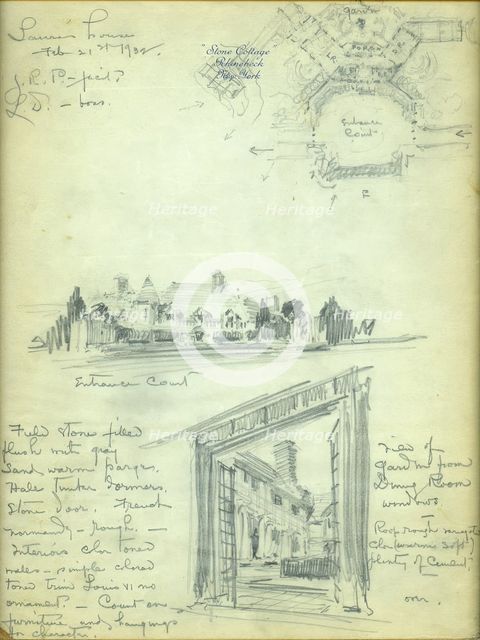 Laura's house
Feb 21st 1932.
J.R.P. –
L.D. – boss.
"Stone Cottage"
Rhinebeck
New York
garden
L.R.
PORCH
Entrance
Court
F
Heritage
Heritage
Heritage
Heritage
Heritage
Heritage
©
Entrance Court
Field stone filled
flush with gray
sand warm parge.
Hale timber dormers,
Stone door. French
normandy – rough. –
Interiors clor toned
walls – simple colored
toned trim Louis VI no
ornament. – Count on
furniture and hangings
for character.
view of
garden from
Dining Room
windows
Roof rough
clor (warm soft)
plenty of Cement.
over.